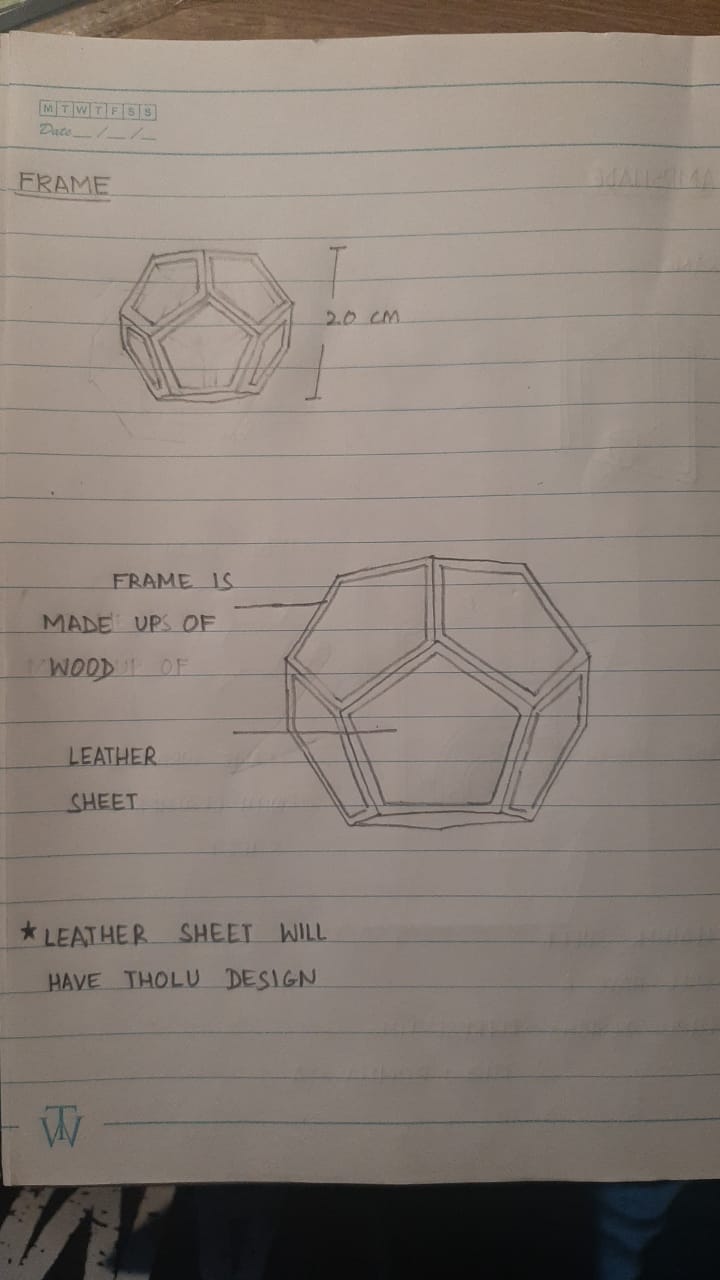 M T W T F S S
Date__/__/__
FRAME
20 CM
FRAME IS
MADE UPS OF
WOOD
LEATHER
SHEET
★ LEATHER SHEET WILL
HAVE THOLU DESIGN
TW